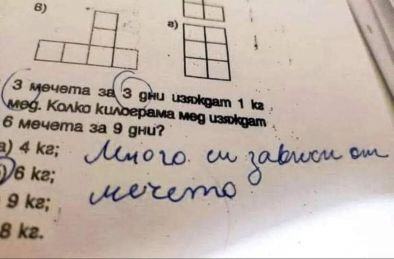 в)
г)
3 мечета за 3 дни изяждат 1 кг
мед. Колко килограма мед изяждат
6 мечета за 9 дни?
а) 4 кг;
Много си зависи от
6 кг;
мечето
9 кг;
8 кг.